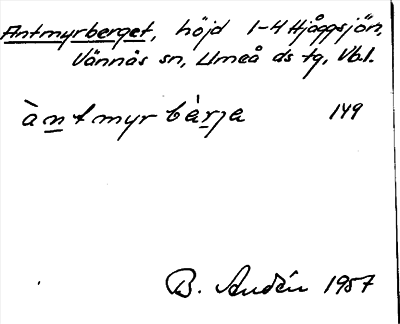 Antmyrberget, höjd 1-4 Hjåggsjön,
Vännäs sn, Umeå ds tg, Vb.l.
àntmyrbàrja 149
B. Audén 1957